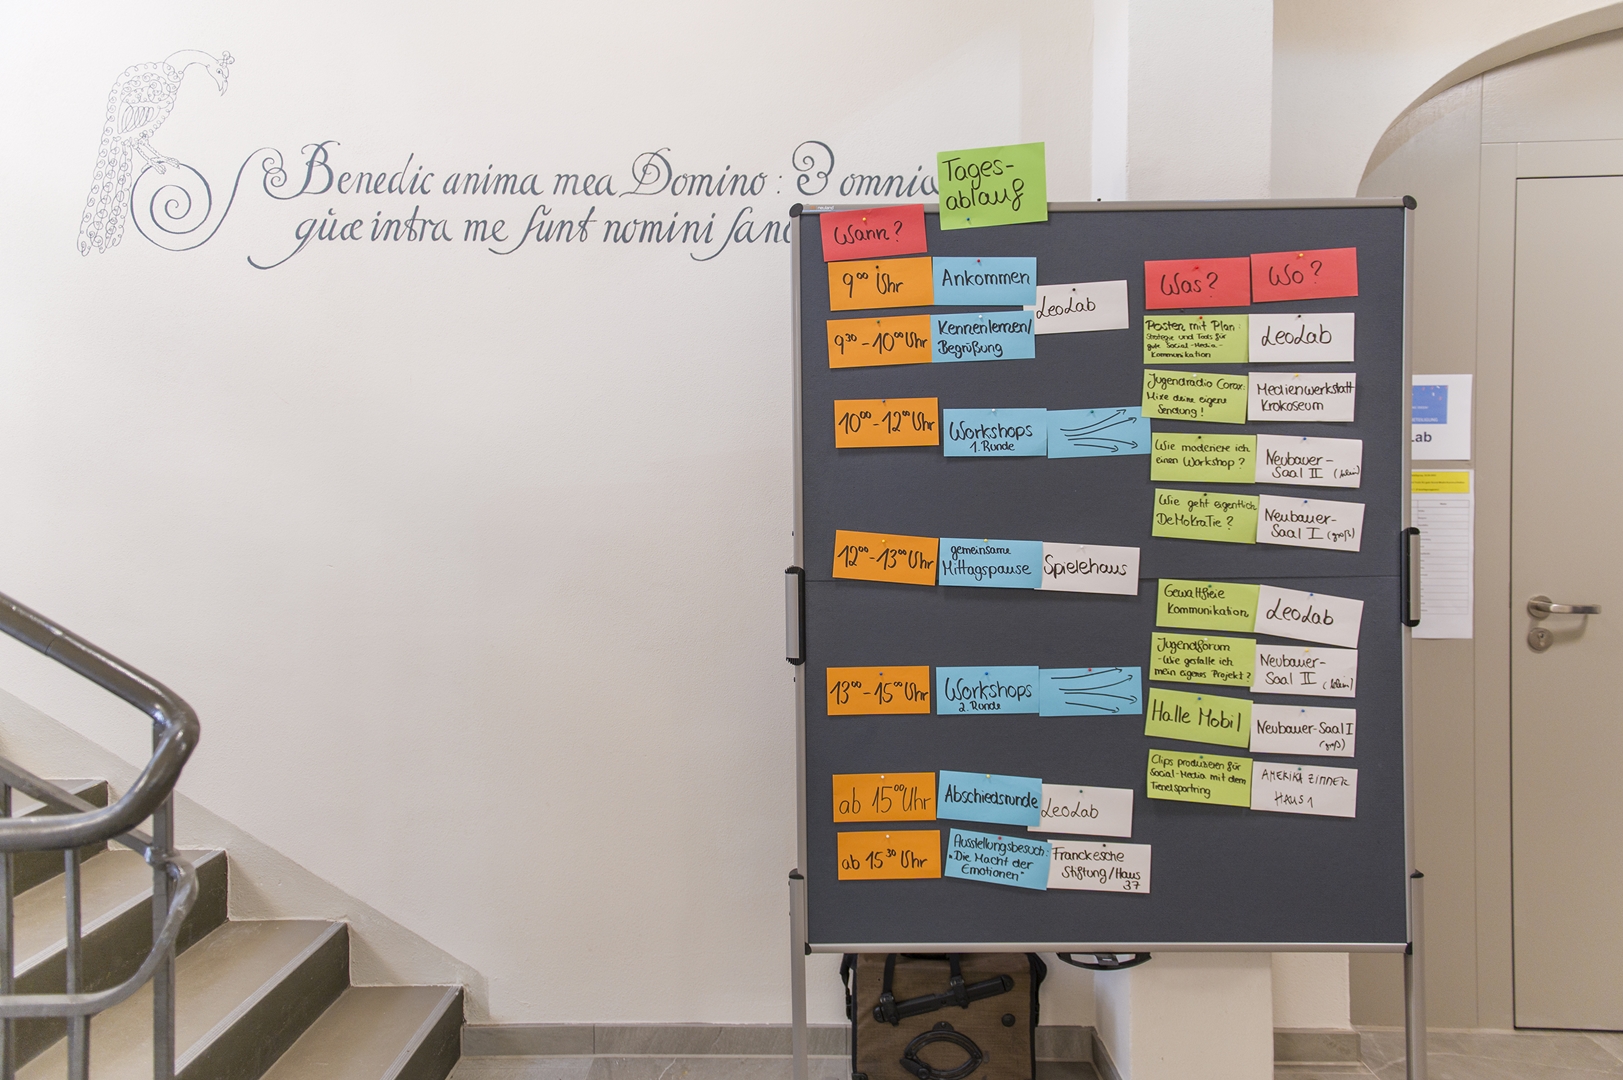 Benedic anima mea Domino : & omnia
quæ intra me sunt nomini sanc
Tages-
ablauf
Wann?
9⁰⁰ Uhr
Ankommen
LeoLab
9³⁰-10⁰⁰ Uhr
Kennenlernen/
Begrüßung
10⁰⁰-12⁰⁰ Uhr
Workshops
1. Runde
12⁰⁰-13⁰⁰ Uhr
gemeinsame
Mittagspause
Spielehaus
13⁰⁰-15⁰⁰ Uhr
Workshops
2. Runde
ab 15⁰⁰ Uhr
Abschiedsrunde
LeoLab
ab 15³⁰ Uhr
Ausstellungsbesuch:
"Die Macht der
Emotionen"
Franckesche
Stiftung/Haus
37
Was?
Wo?
Posten mit Plan:
Strategie und Tools für
gute Social-Media-
Kommunikation
LeoLab
Jugendradio Corax:
Mixe deine eigene
Sendung!
Medienwerkstatt
Krokoseum
Wie moderiere ich
einen Workshop?
Neubauer-
Saal II (klein)
Wie geht eigentlich
DeMoKraTie?
Neubauer-
Saal I (groß)
Gewaltfreie
Kommunikation
LeoLab
Jugendforum
-Wie gestalte ich
mein eigenes Projekt?
Neubauer-
Saal II (klein)
Halle Mobil
Neubauer-Saal I
(groß)
Clips produzieren für
Social-Media mit dem
AMERIKA ZIMMER
HAUS 1
Lab